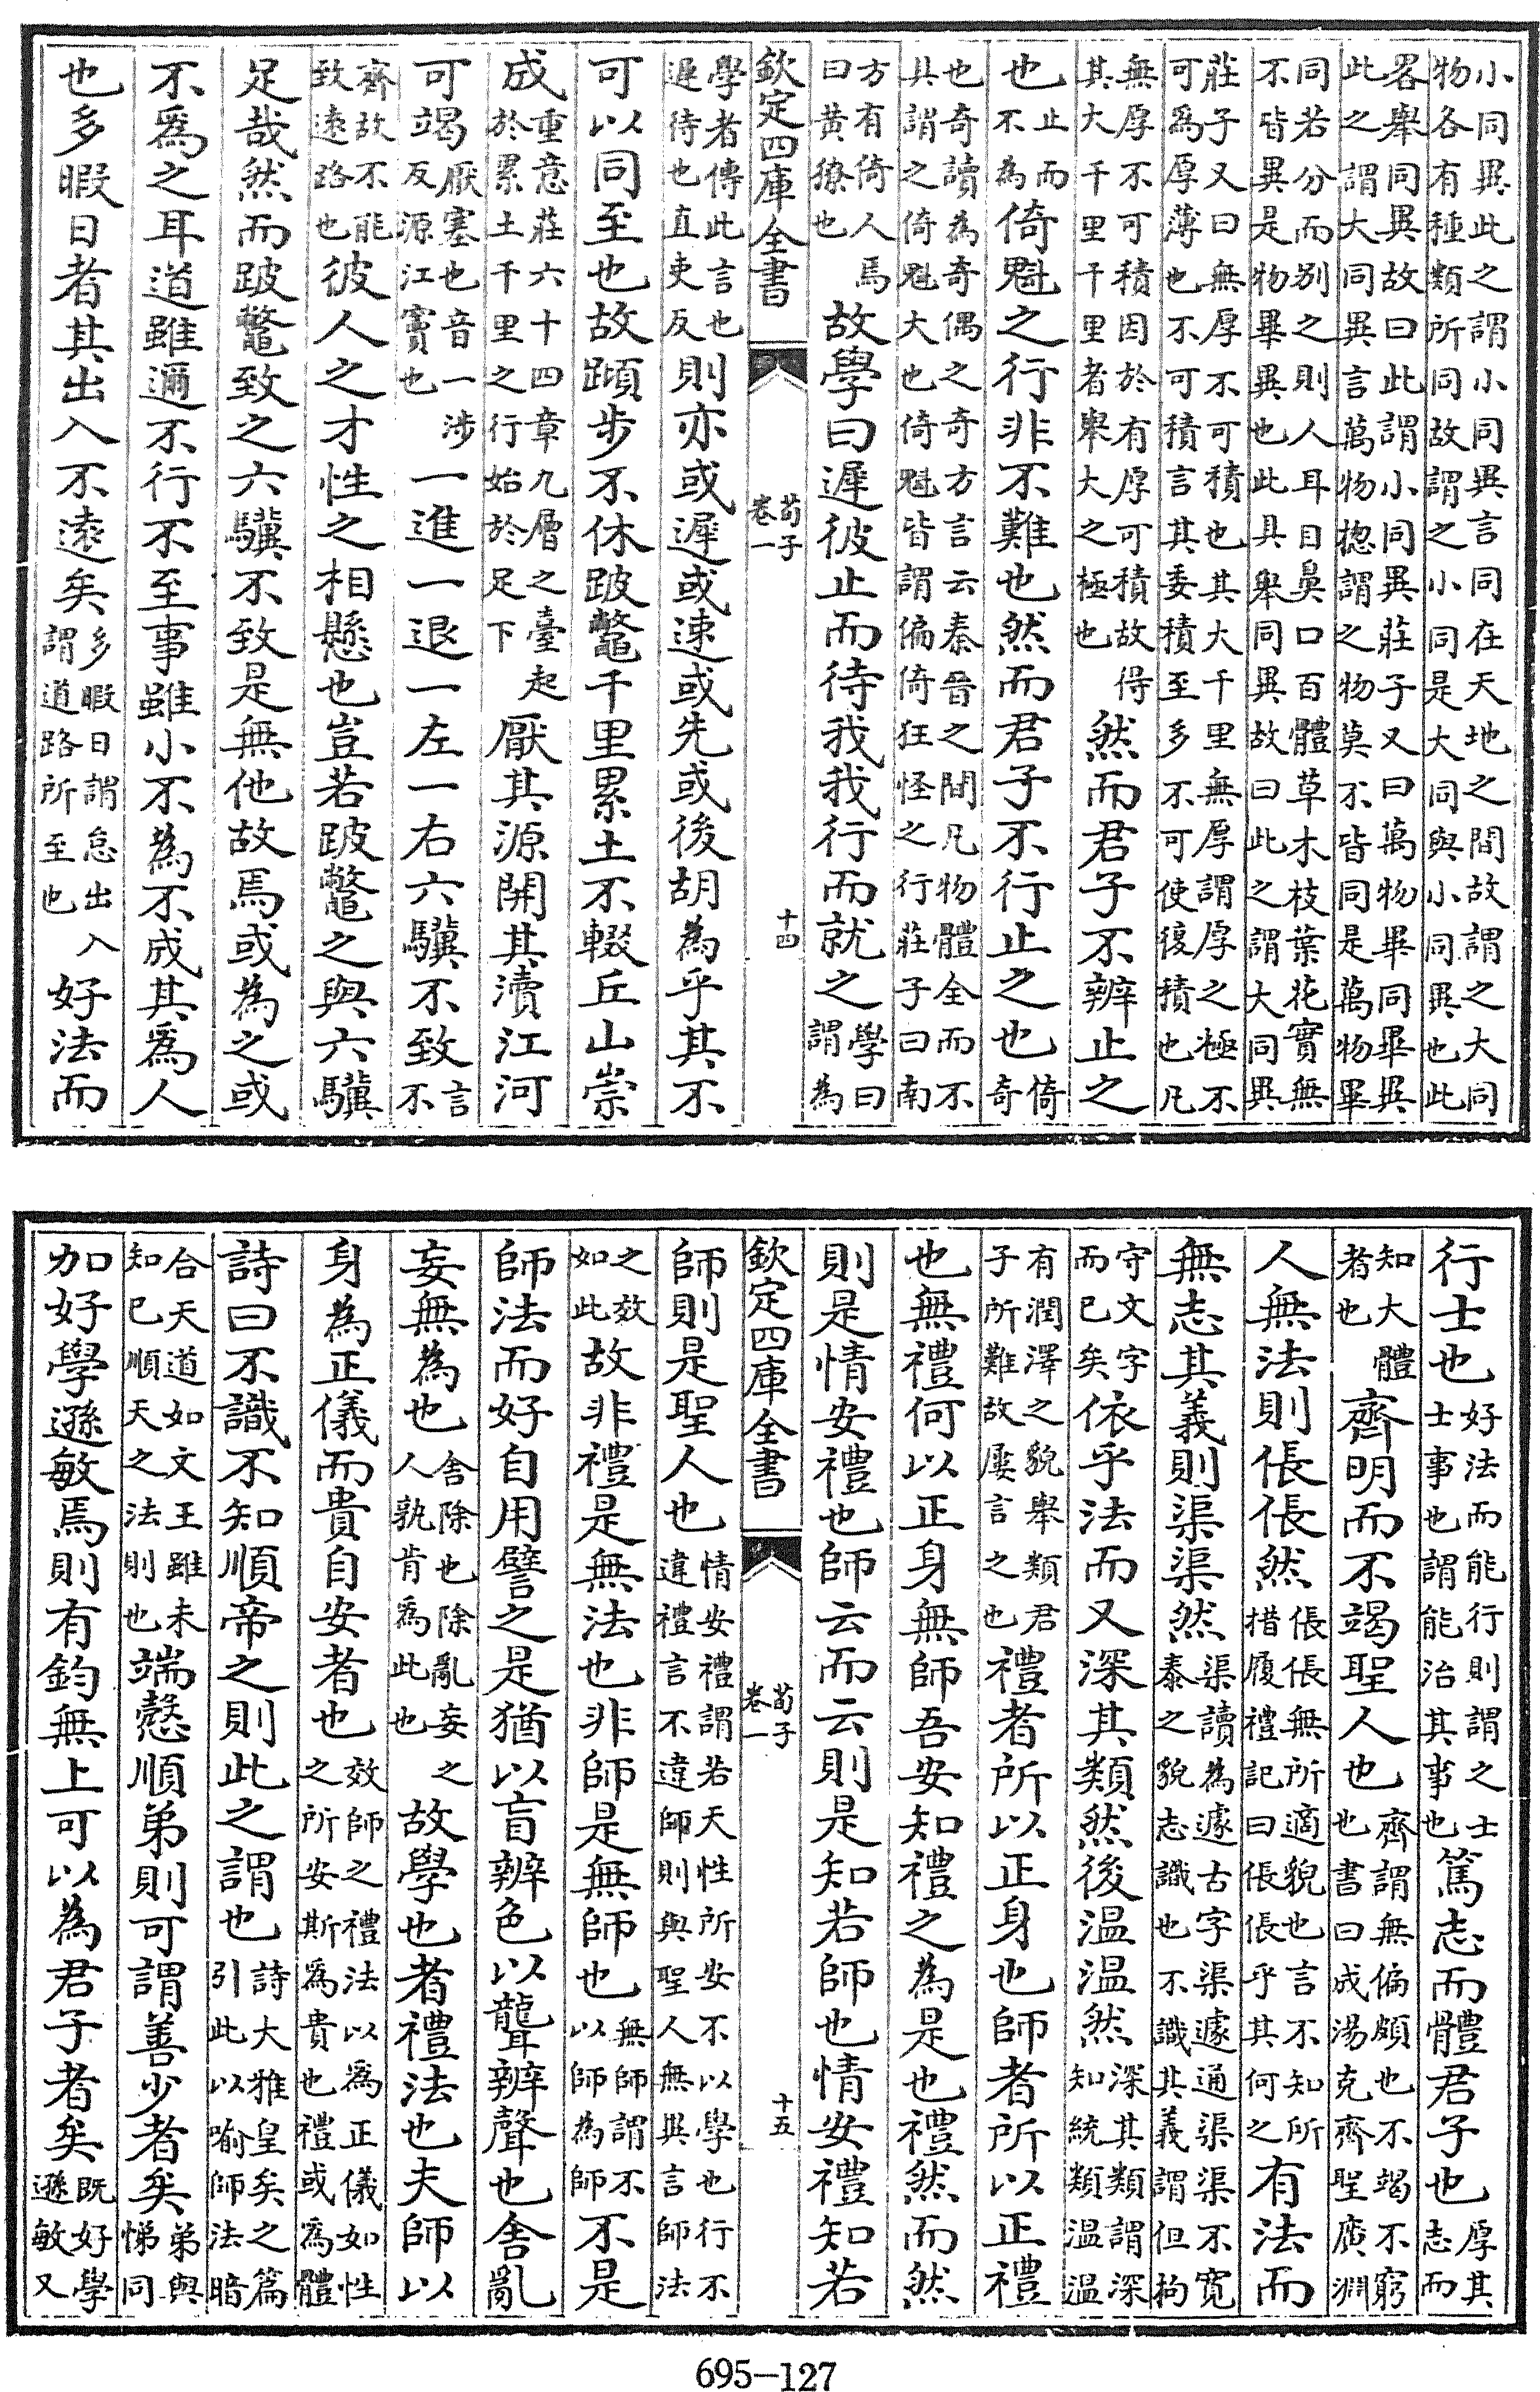 小同異此之謂小同異言同在天地之間故謂之大同物各有種類所同故謂之小同是大同與小同異也此
畧舉同異故曰此謂小同異莊子又曰萬物畢同畢異此之謂大同異言萬物惣謂之物莫不皆同是萬物畢
同若分而别之則人耳目鼻口百體草木枝葉花實無不皆異是物畢異也此具舉同異故曰此之謂大同異
莊子又曰無厚不可積也其大千里無厚謂厚之極不可爲厚薄也不可積言其委積至多不可使復積也凡
無厚不可積因於有厚可積故得其大千里千里者舉大之極也然而君子不辨止之
也止而不為倚魁之行非不難也然而君子不行止之也倚奇
也奇讀為奇偶之奇方言云秦晉之間凡物體全而不具謂之倚魁大也倚魁皆謂偏倚狂怪之行莊子曰南
方有倚人焉曰黃獠也故學曰遲彼止而待我我行而就之學曰謂為
欽定四庫全書 荀子卷一 十四
學者傳此言也遲待也直吏反則亦或遲或速或先或後胡為乎其不
可以同至也故蹞步不休跛鼈千里累土不輟丘山崇
成重意莊六十四章九層之臺起於累土千里之行始於足下厭其源開其瀆江河
可竭厭塞也音一涉反源江竇也一進一退一左一右六驥不致言不
齊故不能致遠路也彼人之才性之相懸也豈若跛鼈之與六驥
足哉然而跛鼈致之六驥不致是無他故焉或為之或
不爲之耳道雖邇不行不至事雖小不為不成其爲人
也多暇日者其出入不遠矣多暇日謂怠出入謂道路所至也好法而
行士也好法而能行則謂之士士事也謂能治其事也篤志而體君子也厚其志而
知大體者也齊明而不竭聖人也齊謂無偏頗也不竭不窮也書曰成湯克齊聖廣淵
人無法則倀倀然倀倀無所適貌也言不知所措履禮記曰倀倀乎其何之有法而
無志其義則渠渠然渠讀為遽古字渠遽通渠渠不寛泰之貌志識也不識其義謂但拘
守文字而已矣依乎法而又深其類然後温温然深其類謂深知統類温温
有潤澤之貌舉類君子所難故屢言之也禮者所以正身也師者所以正禮
也無禮何以正身無師吾安知禮之為是也禮然而然
則是情安禮也師云而云則是知若師也情安禮知若
欽定四庫全書 荀子卷一 十五
師則是聖人也情安禮謂若天性所安不以學也行不違禮言不違師則與聖人無異言師法
之效如此故非禮是無法也非師是無師也無師謂不以師為師不是
師法而好自用譬之是猶以盲辨色以聾辨聲也舎亂
妄無為也舎除也除亂妄之人孰肯爲此也故學也者禮法也夫師以
身為正儀而貴自安者也效師之禮法以爲正儀如性之所安斯爲貴也禮或爲體
詩曰不識不知順帝之則此之謂也詩大雅皇矣之篇引此以喻師法暗
合天道如文王雖未知已順天之法則也端慤順弟則可謂善少者矣弟與悌同
加好學遜敏焉則有鈞無上可以為君子者矣既好學遜敏又
695-127